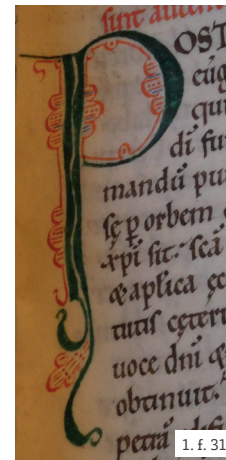 sunt aucten
POST
eūg
qui
di fu
mandū pu
sę ꝑ orbem
xp̄i sit: scā
& aplica ec
tutis cęteri
uoce dn̄i &
obtinuit.
petrā
1. f. 31